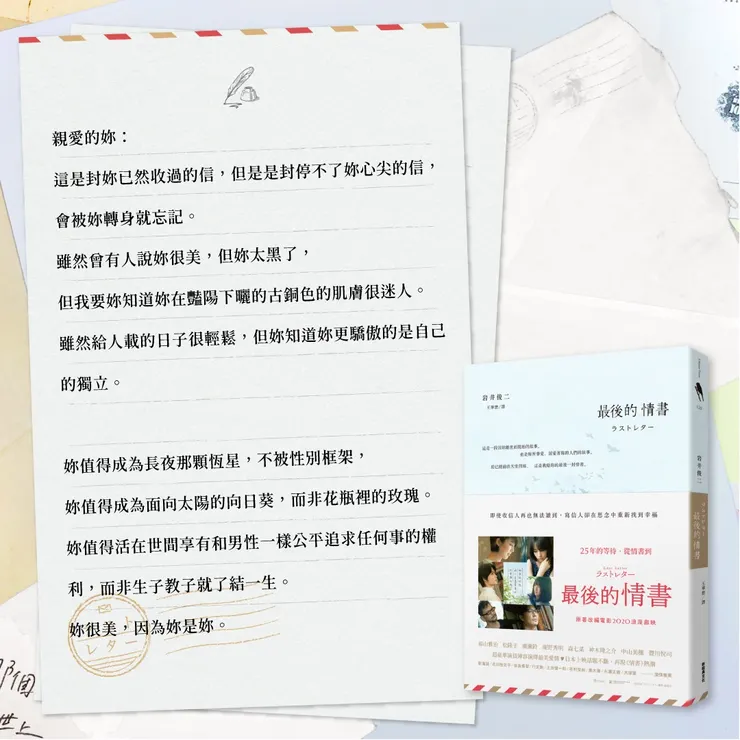 親愛的妳：
這是封妳已然收過的信，但是是封停不了妳心尖的信，
會被妳轉身就忘記。
雖然曾有人說妳很美，但妳太黑了，
但我要妳知道妳在豔陽下曬的古銅色的肌膚很迷人。
雖然給人載的日子很輕鬆，但妳知道妳更驕傲的是自己
的獨立。
妳值得成為長夜那顆恆星，不被性別框架，
妳值得成為面向太陽的向日葵，而非花瓶裡的玫瑰。
妳值得活在世間享有和男性一樣公平追求任何事的權
利，而非生子教子就了結一生。
妳很美，因為妳是妳。
レター
那個
世上
岩井俊二
王華懋/譯
最後的情書
ラストレター
岩井俊二
ラストレター
最後的情書
王華懋 譯
即使收信人再也無法讀到，寫信人卻在思念中重新找到幸福
25年的等待，從情書到
Last Letter
ラストレター
最後的情書
原著改編電影2020浪漫獻映